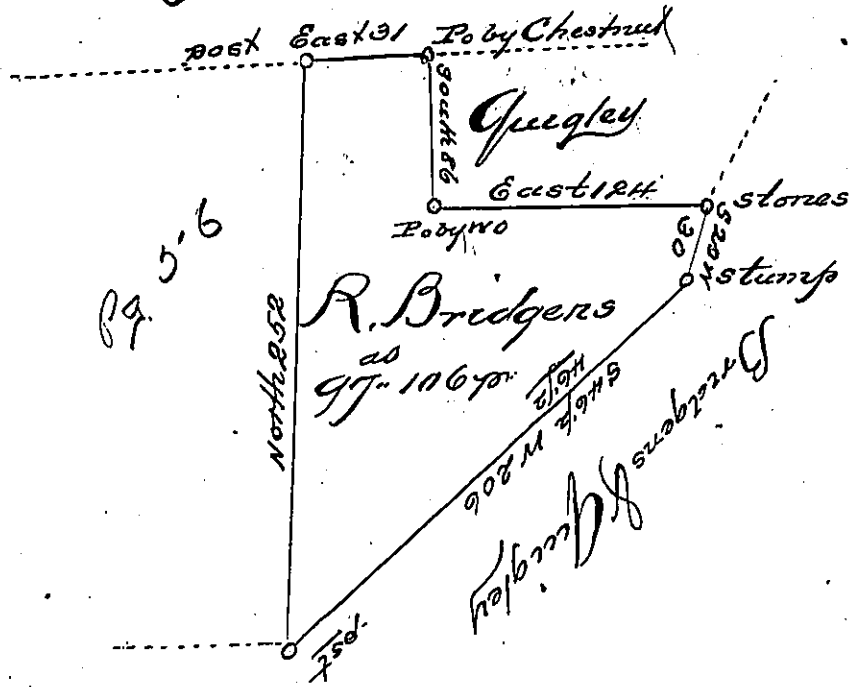 post East 31 Po by Chestnut
South 86
Quigley
East 124
Po by WO
stones
S20W
30
stump
Pg. 56
North 252
R. Bridgens
as
97" 106 pr
46½
S46½ W 206
Bridgens
& Quigley
pst